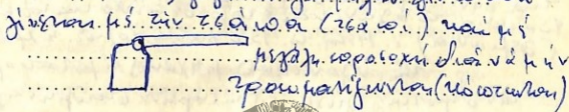 γίνεται μέ τήν τσάπα (τσαπί) καί μέ
μεγάλη προσοχή διά νά μήν
τραυματίζωνται (κόπτωνται)